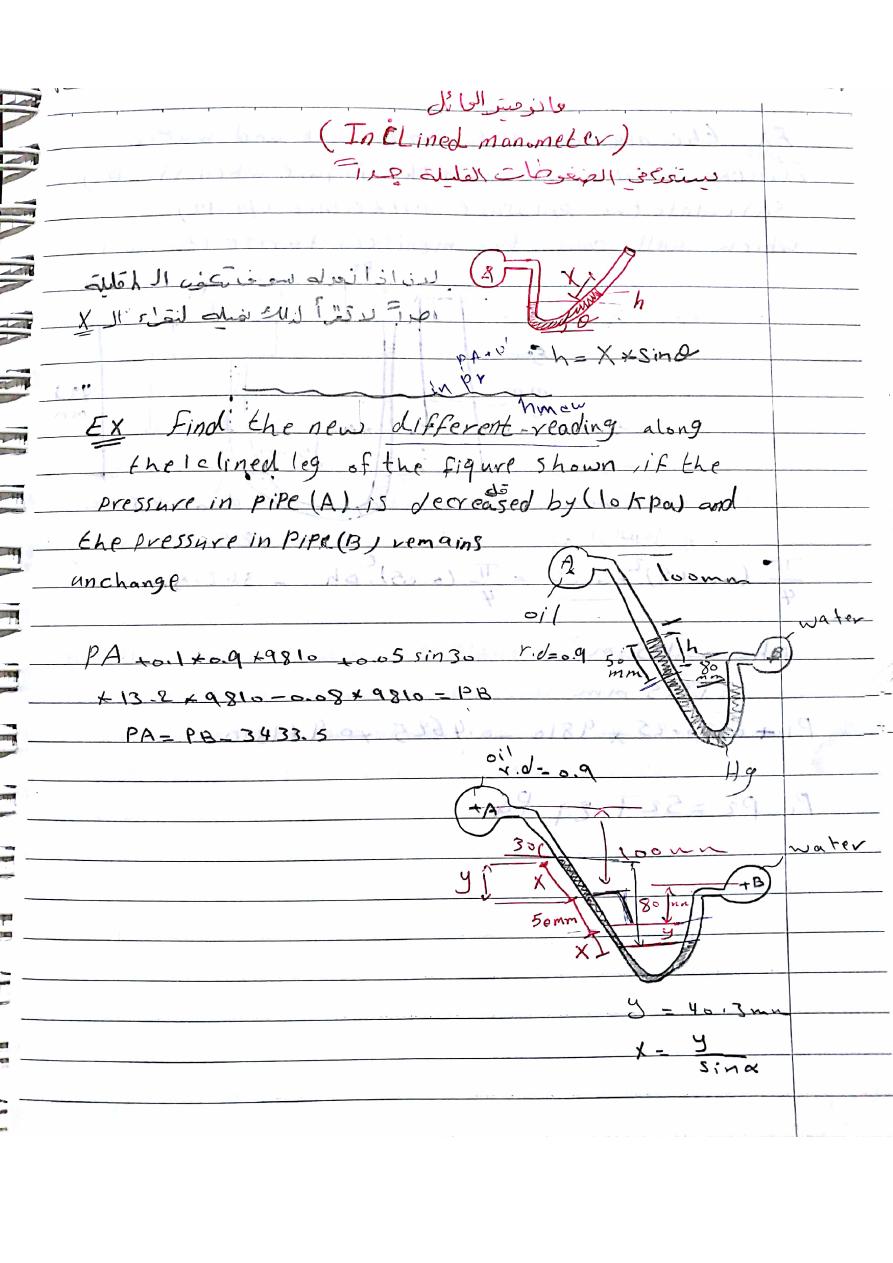 مانوميتر المائل
(Inclined manometer)
يستخدم في الضغوطات القليلة جداً
لان اذا نعدله سوف تكون الـ h قليلة
لا تقرأ لذلك نميله لنقراء الـ X
A
X
h
θ
h = X * sinθ
in Pr
hnew
Ex Find the new different reading along
the clined leg of the figure shown, if the
pressure in pipe (A) is decreased by (10 kpa) and
the pressure in Pipe (B) remains
unchange
A
100mm
oil
r.d=0.9
water
B
50 mm
h
80
Hg
PA +0.1*0.9*9810 +0.05 sin30
*13.2*9810-0.08*9810=PB
PA = PB - 3433.5
oil
r.d=0.9
+A
30
100mm
water
+B
y
X
50mm
80 mm
y
X
y = 40.3mm
x = y
sinα